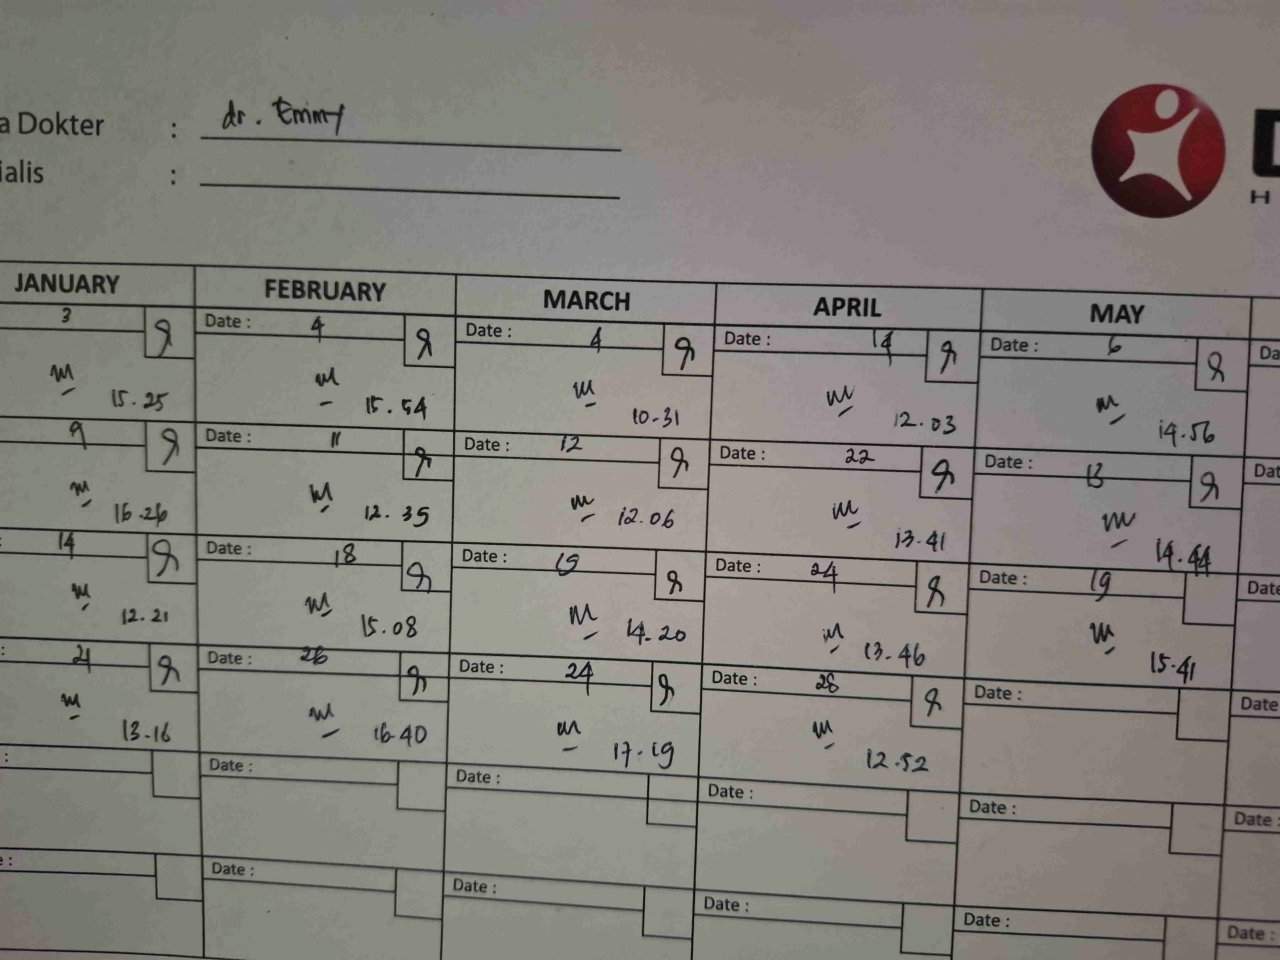 a Dokter : dr. Emmy
ialis :
H
JANUARY FEBRUARY MARCH APRIL MAY
3 Date : 4 Date : 4 Date : 14 Date : 6 Da
15.25 15.54 10-31 12.03 14.56
9 Date : 11 Date : 12 Date : 22 Date : 13 Dat
16-26 12.35 12.06 13.41 14.44
: 14 Date : 18 Date : 19 Date : 24 Date : 19 Date
12.21 15.08 14.20 13.46 15.41
: 21 Date : 26 Date : 24 Date : 28 Date : Date
13-16 16-40 17.19 12.52
: Date : Date : Date : Date : Date :
e : Date : Date : Date : Date : Date :